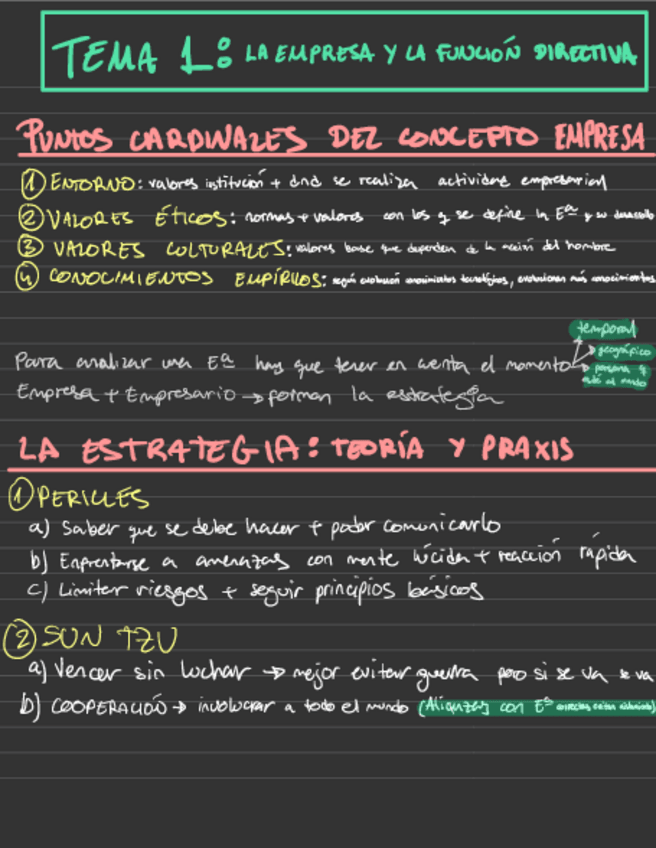 TEMA 1: LA EMPRESA Y LA FUNCIÓN DIRECTIVA
PUNTOS CARDINALES DEL CONCEPTO EMPRESA
① ENTORNO: valores institución + dnd se realiza actividad empresarial
② VALORES ÉTICOS: normas + valores con los q se define la Eª y su desarrollo
③ VALORES CULTURALES: valores base que dependen de la acción del hombre
④ CONOCIMIENTOS EMPÍRICOS: según evolución conocimientos tecnológicos, evolucionan más conocimientos
temporal
geográfico
Para analizar una Eª hay que tener en cuenta el momento
persona q esté al mando
Empresa + Empresario → forman la estrategia
LA ESTRATEGIA: TEORÍA Y PRAXIS
① PERICLES
a) Saber que se debe hacer + poder comunicarlo
b) Enfrentarse a amenazas con mente lúcida + reacción rápida
c) Limitar riesgos + seguir principios básicos
② SUN TZU
a) Vencer sin luchar → mejor evitar guerra pero si se va se va
b) COOPERACIÓN → involucrar a todo el mundo (Alianzas con Eª